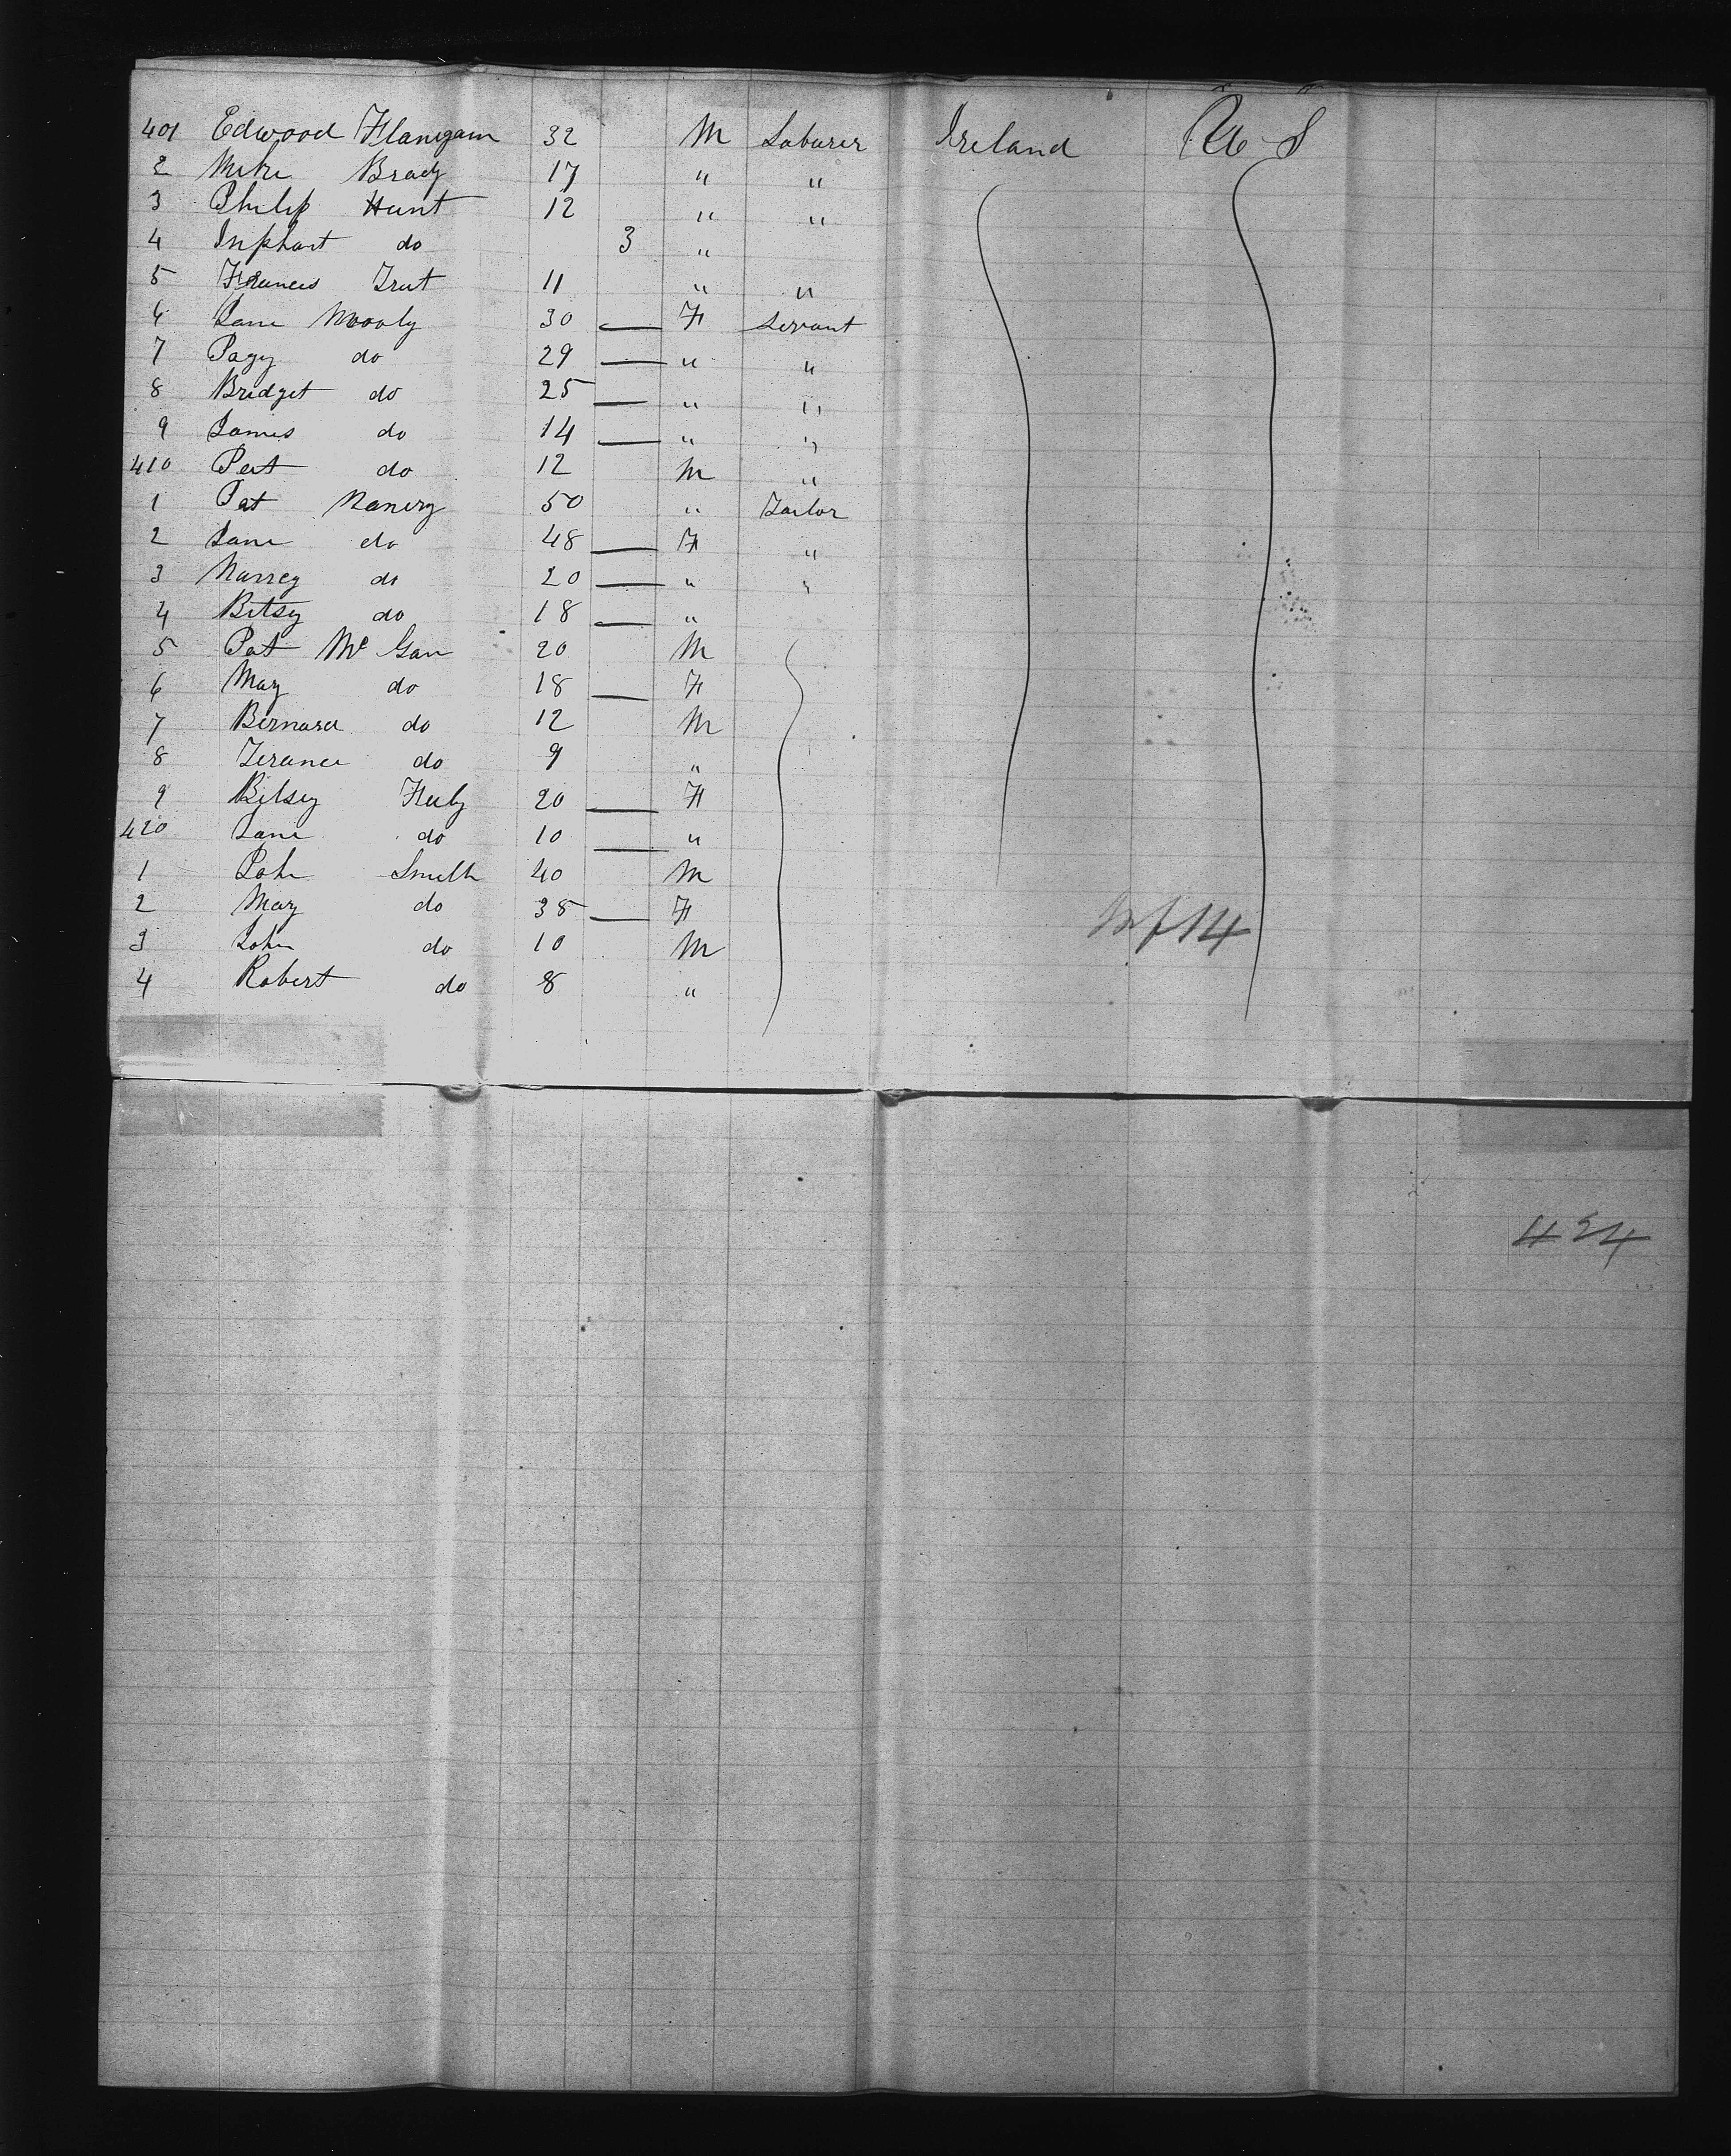 401 Edwood Flanigam 32 M Laburer Ireland U S
2 Mike Brady 17 " "
3 Philip Hunt 12 " "
4 Infhant do 3 "
5 Frances Trut 11 " "
6 Jane Mooly 30 — F Servant
7 Pagy do 29 — " "
8 Bridget do 25 — " "
9 James do 14 — " "
410 Pat do 12 M "
1 Pat Nanery 50 " Tailor
2 Jane do 48 — F "
3 Narrey do 20 — " "
4 Bitsy do 18 — "
5 Pat Mc Gan 20 M
6 Mary do 18 — F
7 Bernard do 12 M
8 Terance do 9 "
9 Bitsey Fluly 20 — F
420 Jane do 10 — "
1 John Smith 40 M
2 Mary do 38 — F
3 John do 10 M
4 Robert do 8 "
14
424